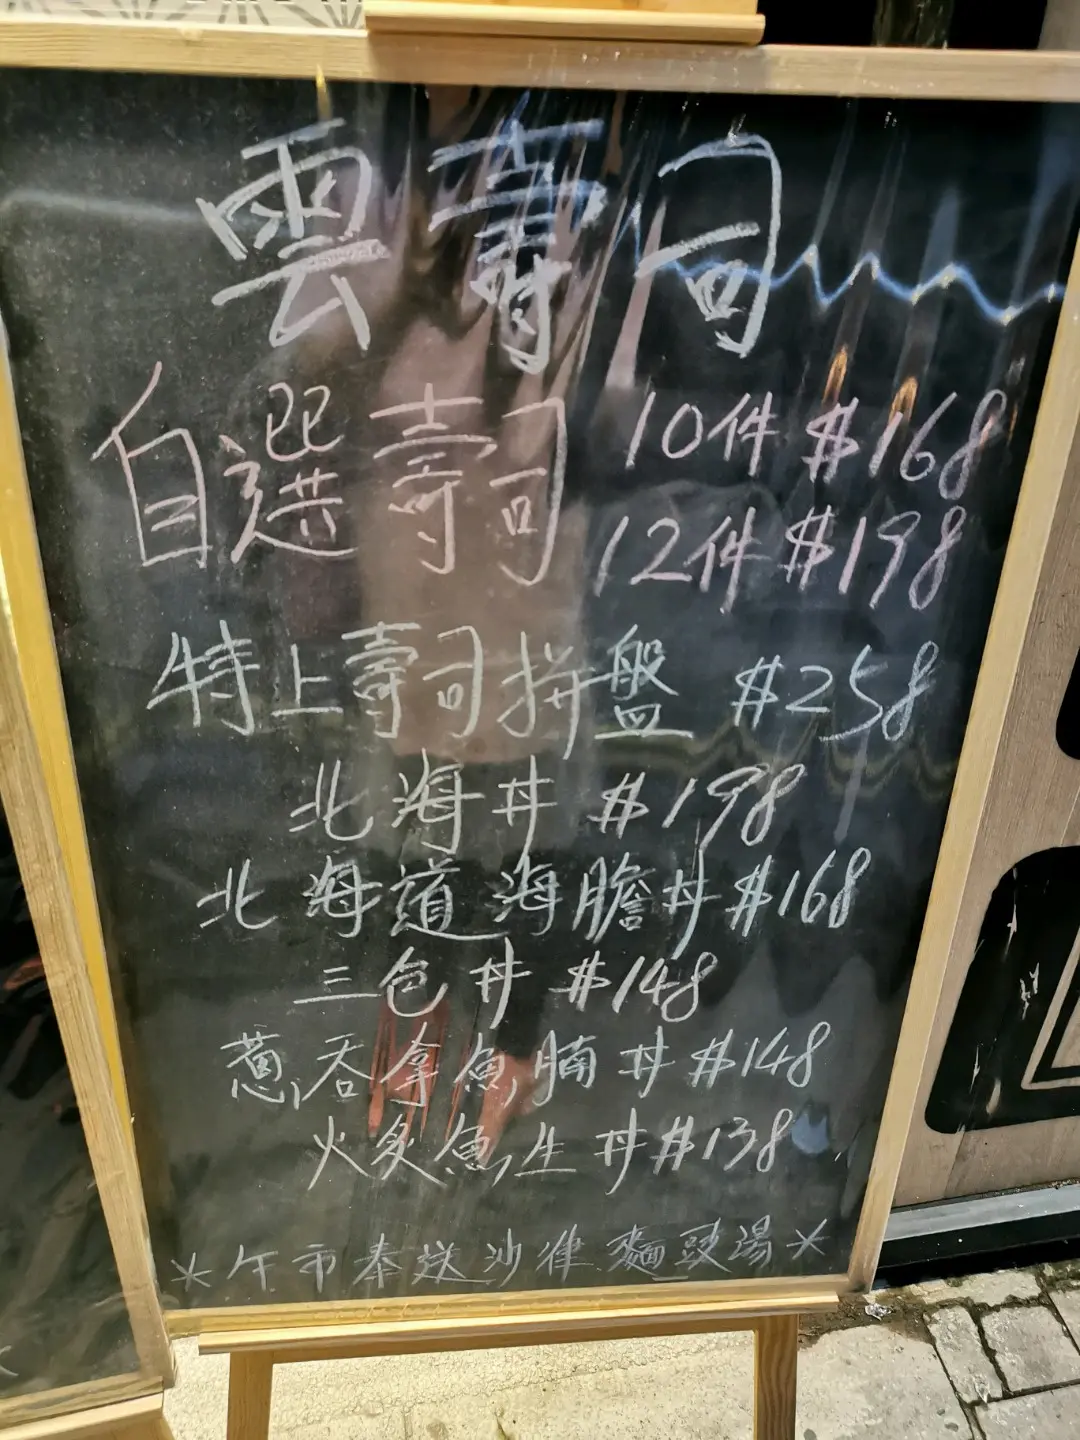 雲壽司
自選壽司 10件 $168
12件 $198
特上壽司拼盤 $258
北海丼 $198
北海道海膽丼 $168
三色丼 $148
蔥吞拿魚腩丼 $148
火炙魚生丼 $138
*午市奉送沙律麵豉湯*